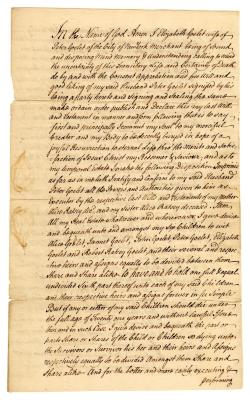 In the Name of God Amen I Elizabeth Goelet wife of
Peter Goelet of the City of New York Merchant being of Sound
and disposing mind memory & understanding calling to mind
the uncertainty of this Transitory life and Certainty of Death
do by and with the Consent Approbation and free Will and
good liking of my said Husband Peter Goelet signified by his
being a party hereto and Signing and Sealing the Same
make ordain order publish and Declare this my last Will
and Testament in manner and form following that is to say
first and principally commend my Soul to my merciful
Creator and my Body to be decently Interred in hope of a
joyful Resurrection to eternal life thro the Merits and Satis
faction of Jesus Christ my Redeemer & Saviour, and as to
my temporal Estate I make the following Disposition
for as much as I ratify and Confirm to my Said Husband
Peter Goelet all the Powers and authorities given to him as
Executor by the respective last Wills and Testaments of my mother
Alice Ratsey and my Sister Alice Ratsey deceased
all my Real Estate whatsoever and wheresoever I give devise
and bequeath unto and amongst my Six Children to wit
Alice Goelet Jannet Goelet, John Goelet Peter Goelet, Elizabeth
Goelet and Robert Ratsey Goelet and their several and respec
tive heirs and assigns equally to be divided between them
Share and Share alike to have and to hold one full & equal
undivided Sixth part thereof unto each of my said Children
and their respective heirs and assigns forever in fee Simple
But if any or either of my said Children should die under
the full age of Twenty one years and without lawful Issue
then and in such Case I give devise and bequeath the part or
parts Share or Shares of the Child or Children so dying unto
the Survivors or Survivor his her and their heirs and assigns
respectively equally to be divided Amongst them Share and
Share alike And for the better and more easily executing &
performing